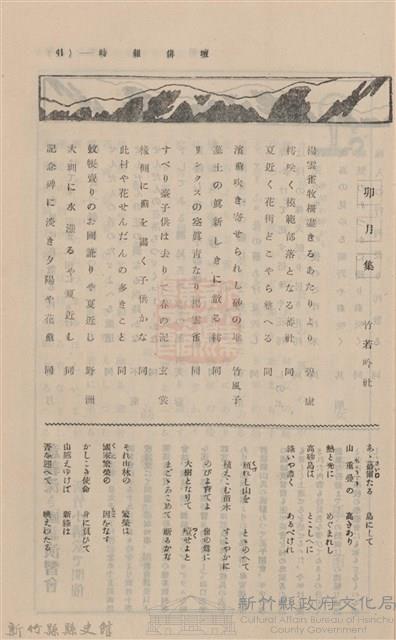 壇俳報時
卯月集
竹若吟社
揚雲雀牧柵盡きるあたりより 碧康
樗咲く模範部落となる蕃社 同
夏近く花街どこやら艶へる 同
濱蘇吹き寄せられし砂の堆 竹風子
墓土の眞新しきに散る樗 同
リンクスの空眞青なり揚雲雀 同
すべり臺子供は去りて春の泥 玄裳
椽側に繭を掻く子供かな 同
此村や花せんだんの多きこと 同
蚊帳賣りのお國訛りや夏近し 野洲
大圳に水漲るや夏近し 同
記念碑に淡き夕陽や花蘇 同
あゝ蓊鬱たる 島にして
山重疊の 高きあり
熱と光に めぐまれし
高砂島は とこしへに
緑いや濃く あるべけれ
頽れし山を ときのへて
植えこむ苗木 すこやかに
のびよ育てよ 春の爲に
大樹となりて 榮せよと
まごころこめて 斷るかな
それ山林の 繁榮は
國家繁榮の 因をなす
かしこき使命 身に負ひて
山脈えゆけば 新緑は
谷を廻へて 映えわたる
新竹縣縣史館
新竹縣政府文化局
Cultural Affairs Bureau of Hsinchu County Government